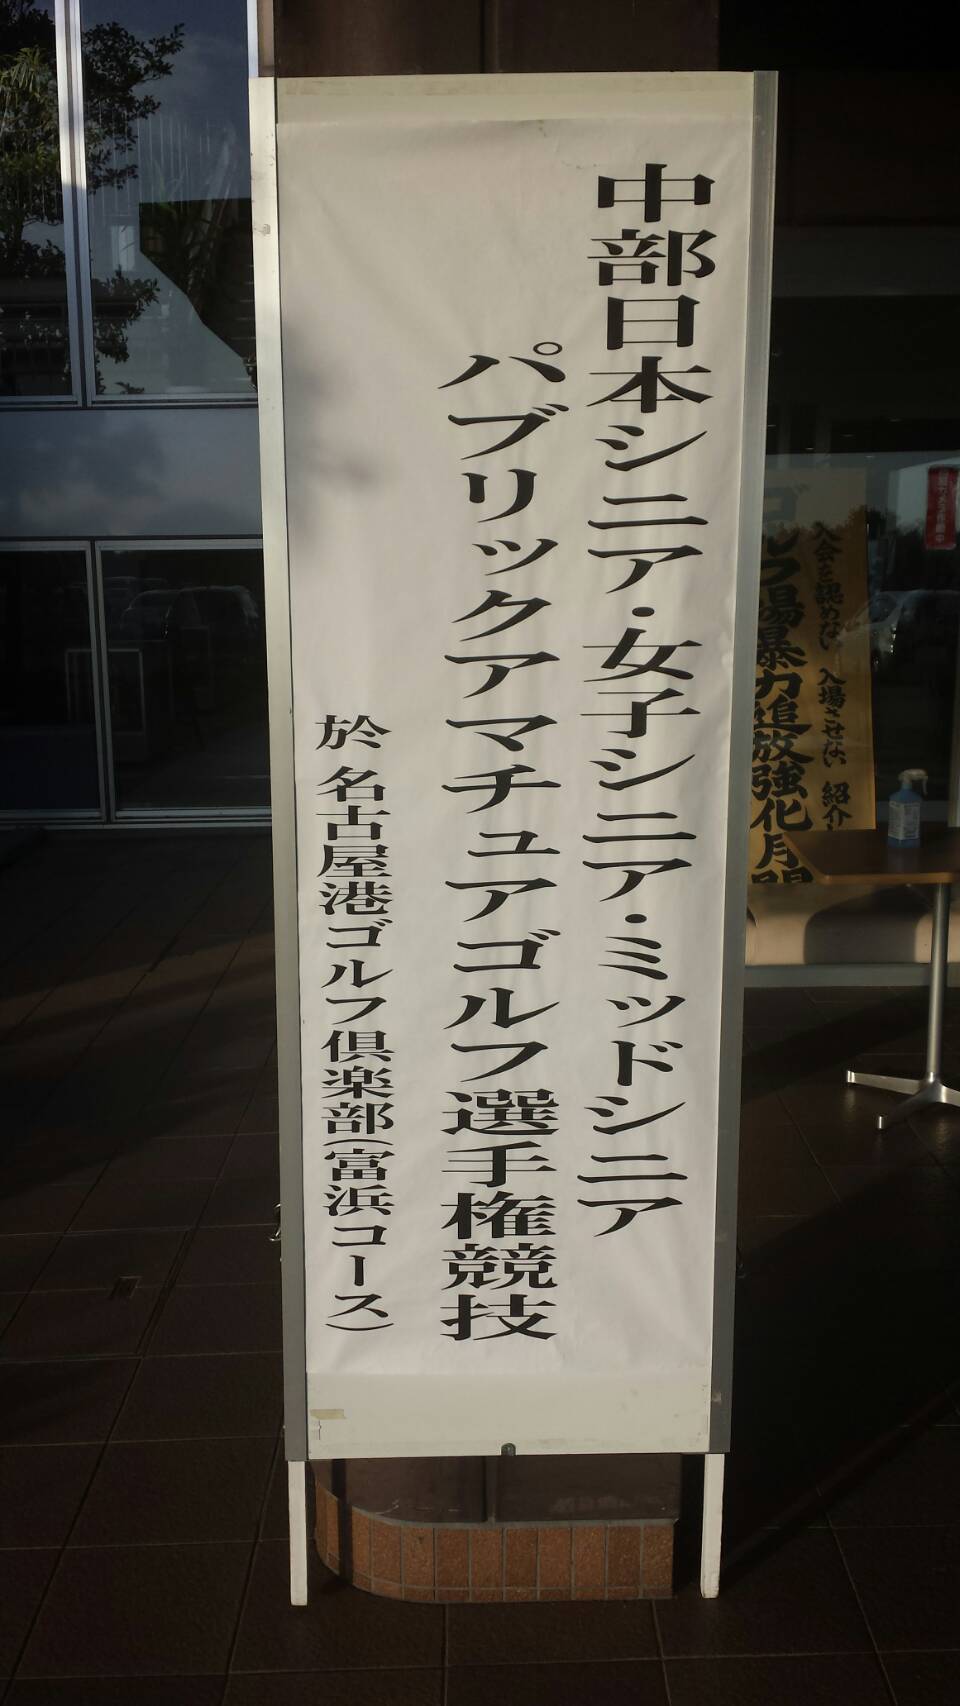 中部日本シニア・女子シニア・ミッドシニア
パブリックアマチュアゴルフ選手権競技
於 名古屋港ゴルフ倶楽部(富浜コース)
入会を認めない 入場させない 紹介し
ゴルフ場暴力追放強化月間